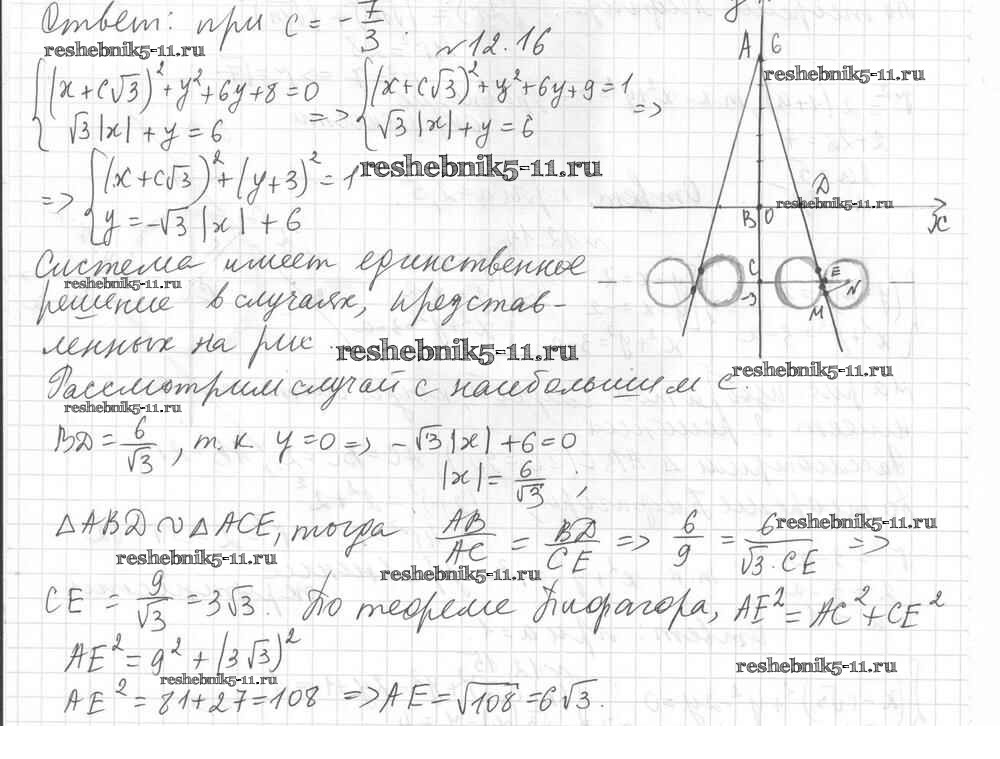 Ответ: при c = -7/3.
reshebnik5-11.ru
№12.16
{(x+c√3)²+y²+6y+8=0 => {(x+c√3)²+y²+6y+9=1 =>
√3|x|+y=6 √3|x|+y=6
reshebnik5-11.ru
=> {(x+c√3)²+(y+3)²=1
y=-√3|x|+6
Система имеет единственное
reshebnik5-11.ru
решение в случаях, представ-
ленных на рис.
reshebnik5-11.ru
Рассмотрим случай с наибольшим c.
reshebnik5-11.ru
BD=6/√3, т.к. y=0 => -√3|x|+6=0
|x|=6/√3;
△ABD ∾ △ACE, тогда AB/AC = BD/CE => 6/9 = 6/(√3·CE) =>
reshebnik5-11.ru
reshebnik5-11.ru
reshebnik5-11.ru
CE = 9/√3 = 3√3. По теореме Пифагора, AE²=AC²+CE²
AE²=9²+(3√3)²
reshebnik5-11.ru
reshebnik5-11.ru
AE²=81+27=108 => AE=√108=6√3.
y
A 6
reshebnik5-11.ru
D
reshebnik5-11.ru
B 0
x
C E
-3 N
M
reshebnik5-11.ru